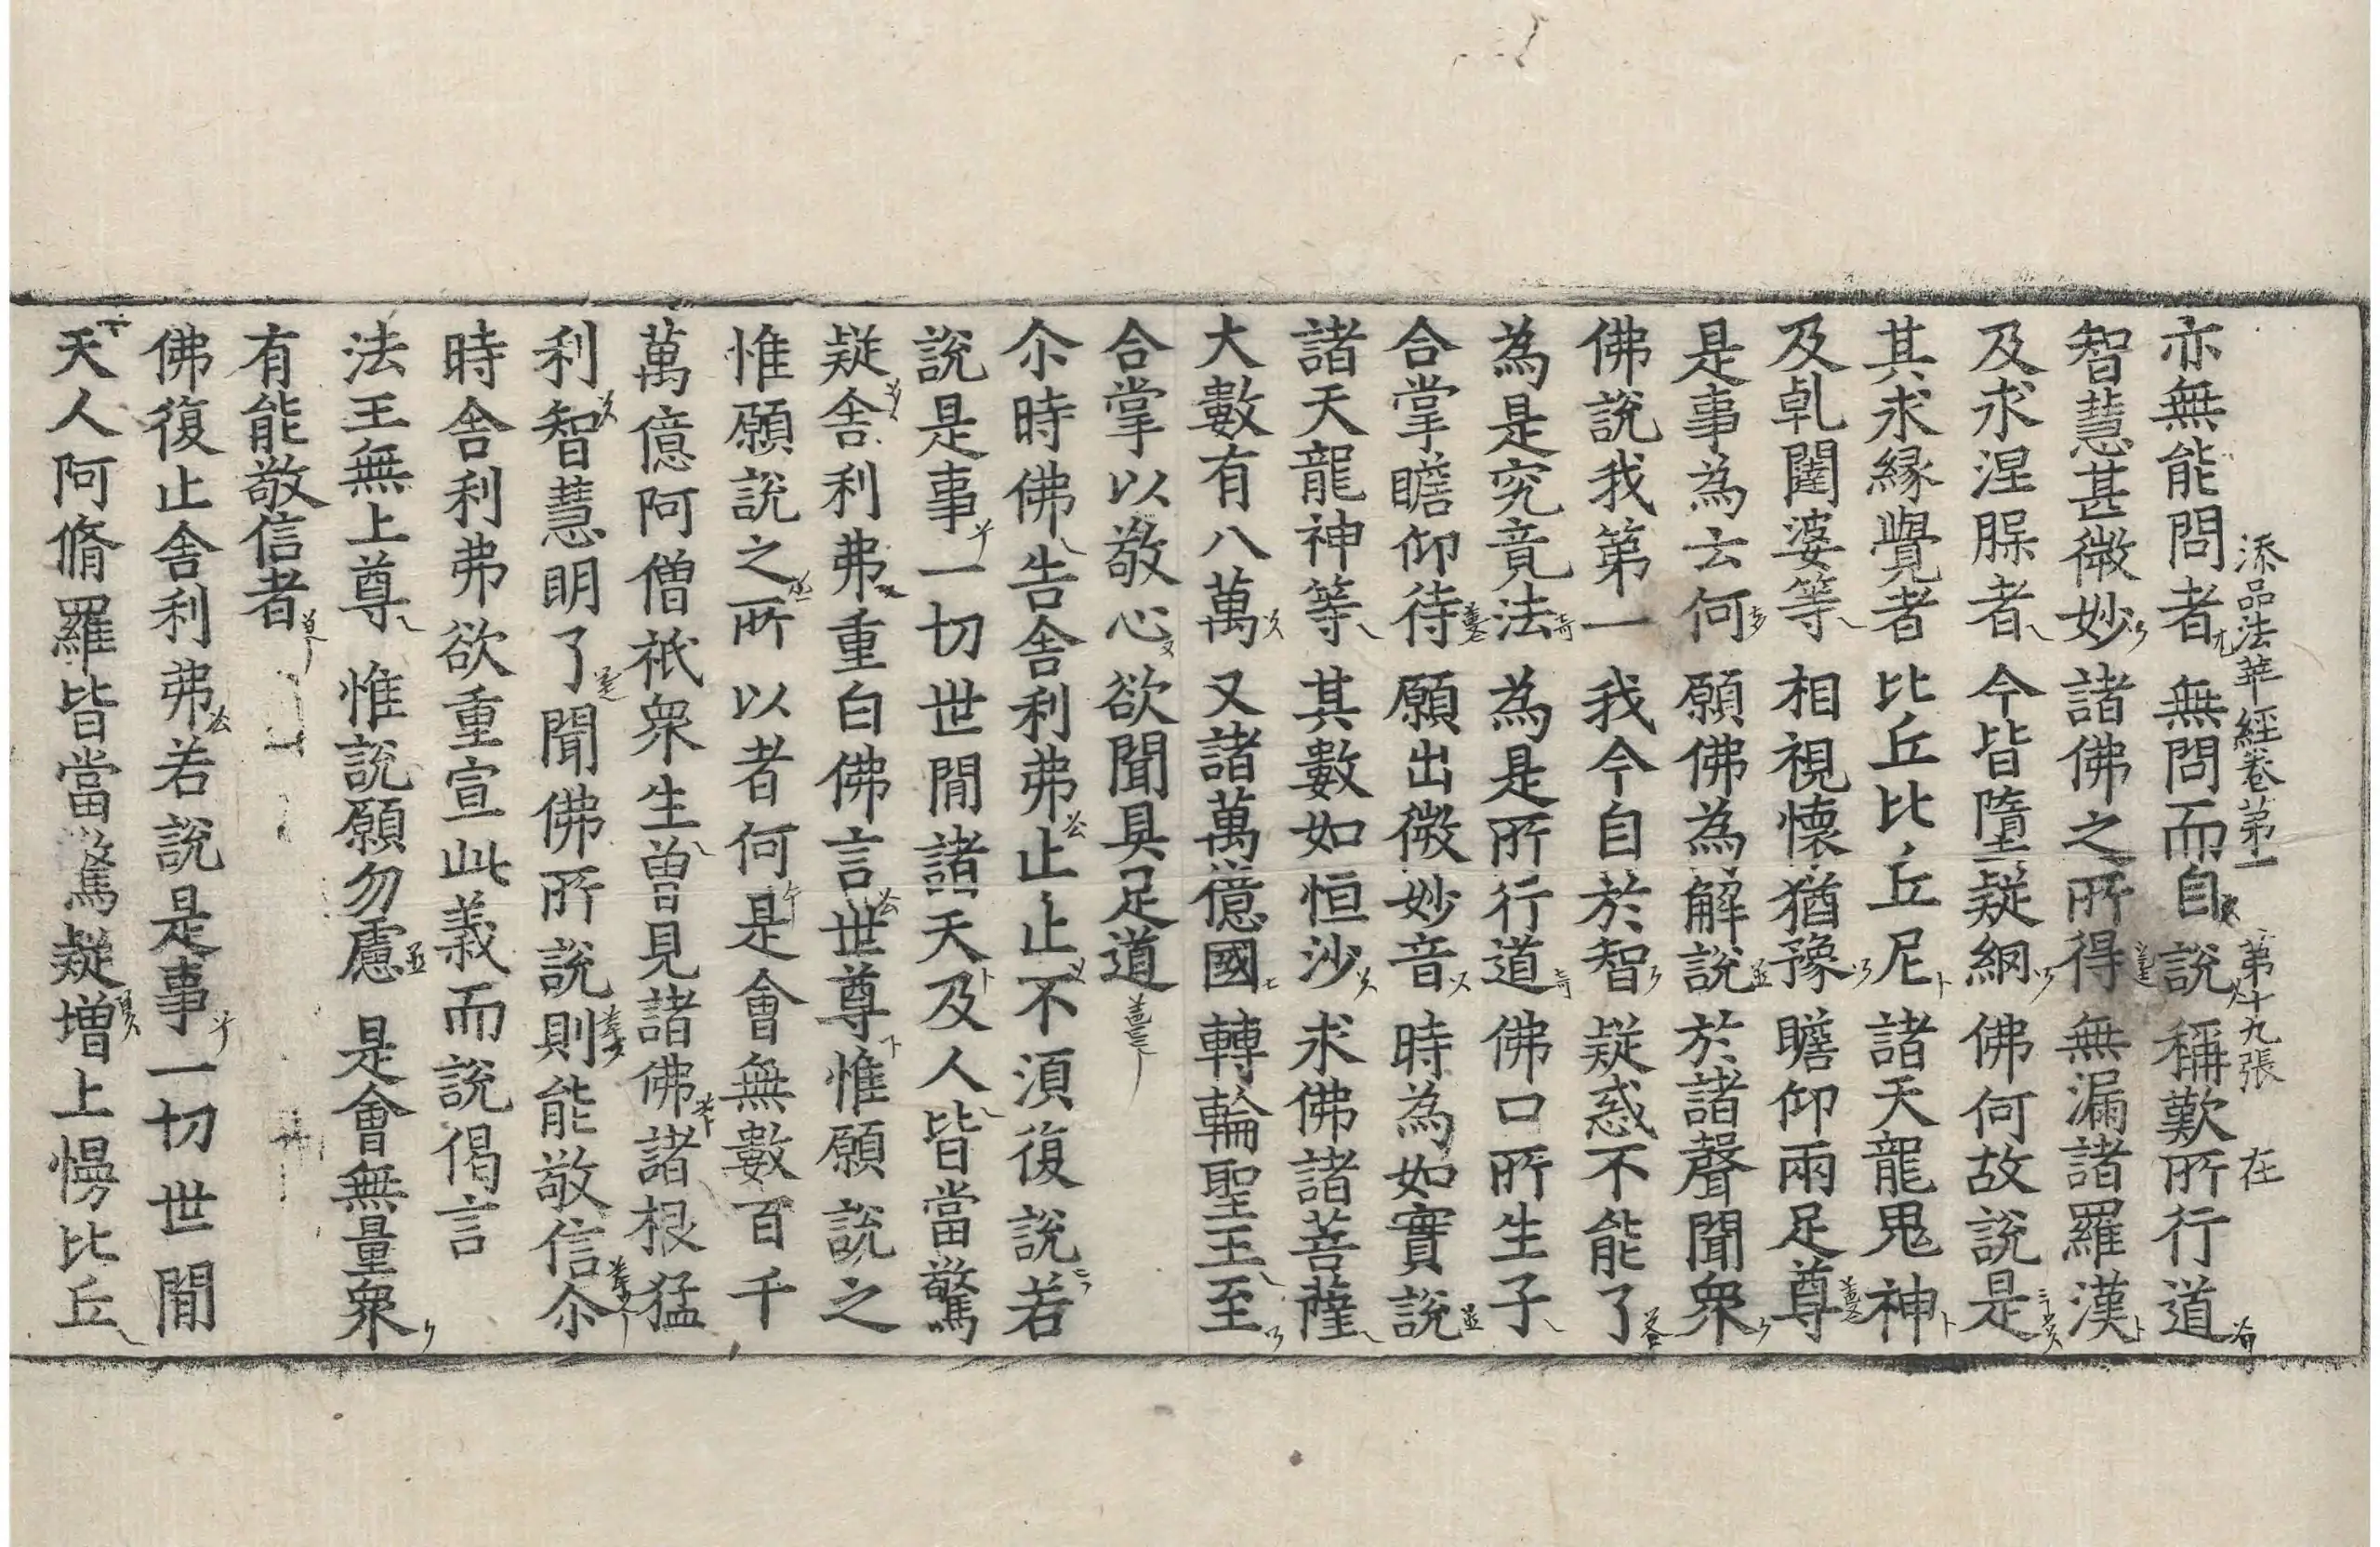 添品法華經卷第一 第十九張 在
亦無能問者 無問而自說 稱歎所行道
智慧甚微妙 諸佛之所得 無漏諸羅漢
及求涅脲者 今皆墮疑網 佛何故說是
其求緣覺者 比丘比丘尼 諸天龍鬼神
及乹闥婆等 相視懷猶豫 瞻仰兩足尊
是事為云何 願佛為解說 於諸聲聞衆
佛說我第一 我今自於智 疑惑不能了
為是究竟法 為是所行道 佛口所生子
合掌瞻仰待 願出微妙音 時為如實說
諸天龍神等 其數如恒沙 求佛諸菩薩
大數有八萬 又諸萬億國 轉輪聖王至
合掌以敬心 欲聞具足道
尒時佛告舍利弗止止不湏復說若
說是事一切世閒諸天及人皆當驚
疑舍利弗重白佛言世尊惟願說之
惟願說之所以者何是會無數百千
萬億阿僧祇衆生曾見諸佛諸根猛
利智慧明了聞佛所說則能敬信尒
時舍利弗欲重宣此義而說偈言
法王無上尊 惟說願勿慮 是會無量衆
有能敬信者
佛復止舍利弗若說是事一切世閒
天人阿脩羅皆當驚疑增上慢比丘